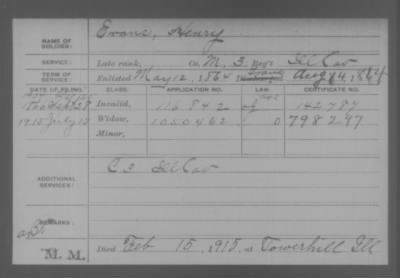 NAME OF SOLDIER: Evans, Henry
SERVICE: Late rank, Co. M, 3 Reg't Ill Cav
TERM OF SERVICE: Enlisted May 12, 1864 Aug 14, 1864
DATE OF FILING. CLASS. APPLICATION NO. LAW. CERTIFICATE NO.
Invalid, 116842 142787
1915 July 12 Widow, 1050462 0 798297
Minor,
ADDITIONAL SERVICES: C 3 Ill Cav
REMARKS:
M. M. Died Feb 15, 1915, at Towerhill Ill